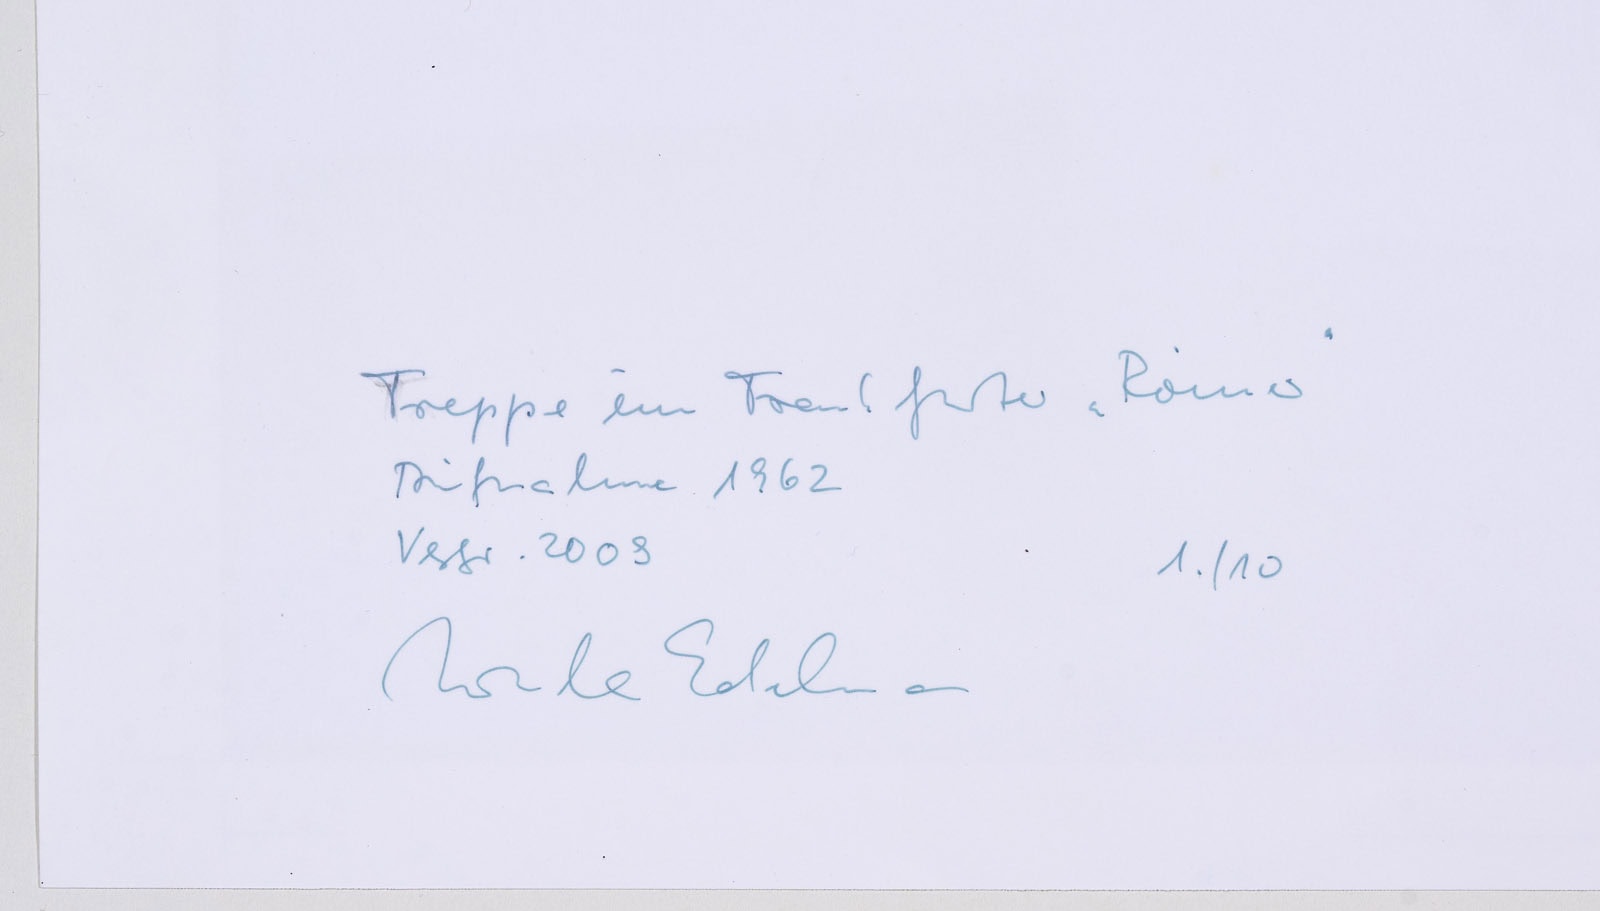 Treppe im Frankfurter „Römer"
Aufnahme 1962
Vergr. 2009
1./10
Edelmann